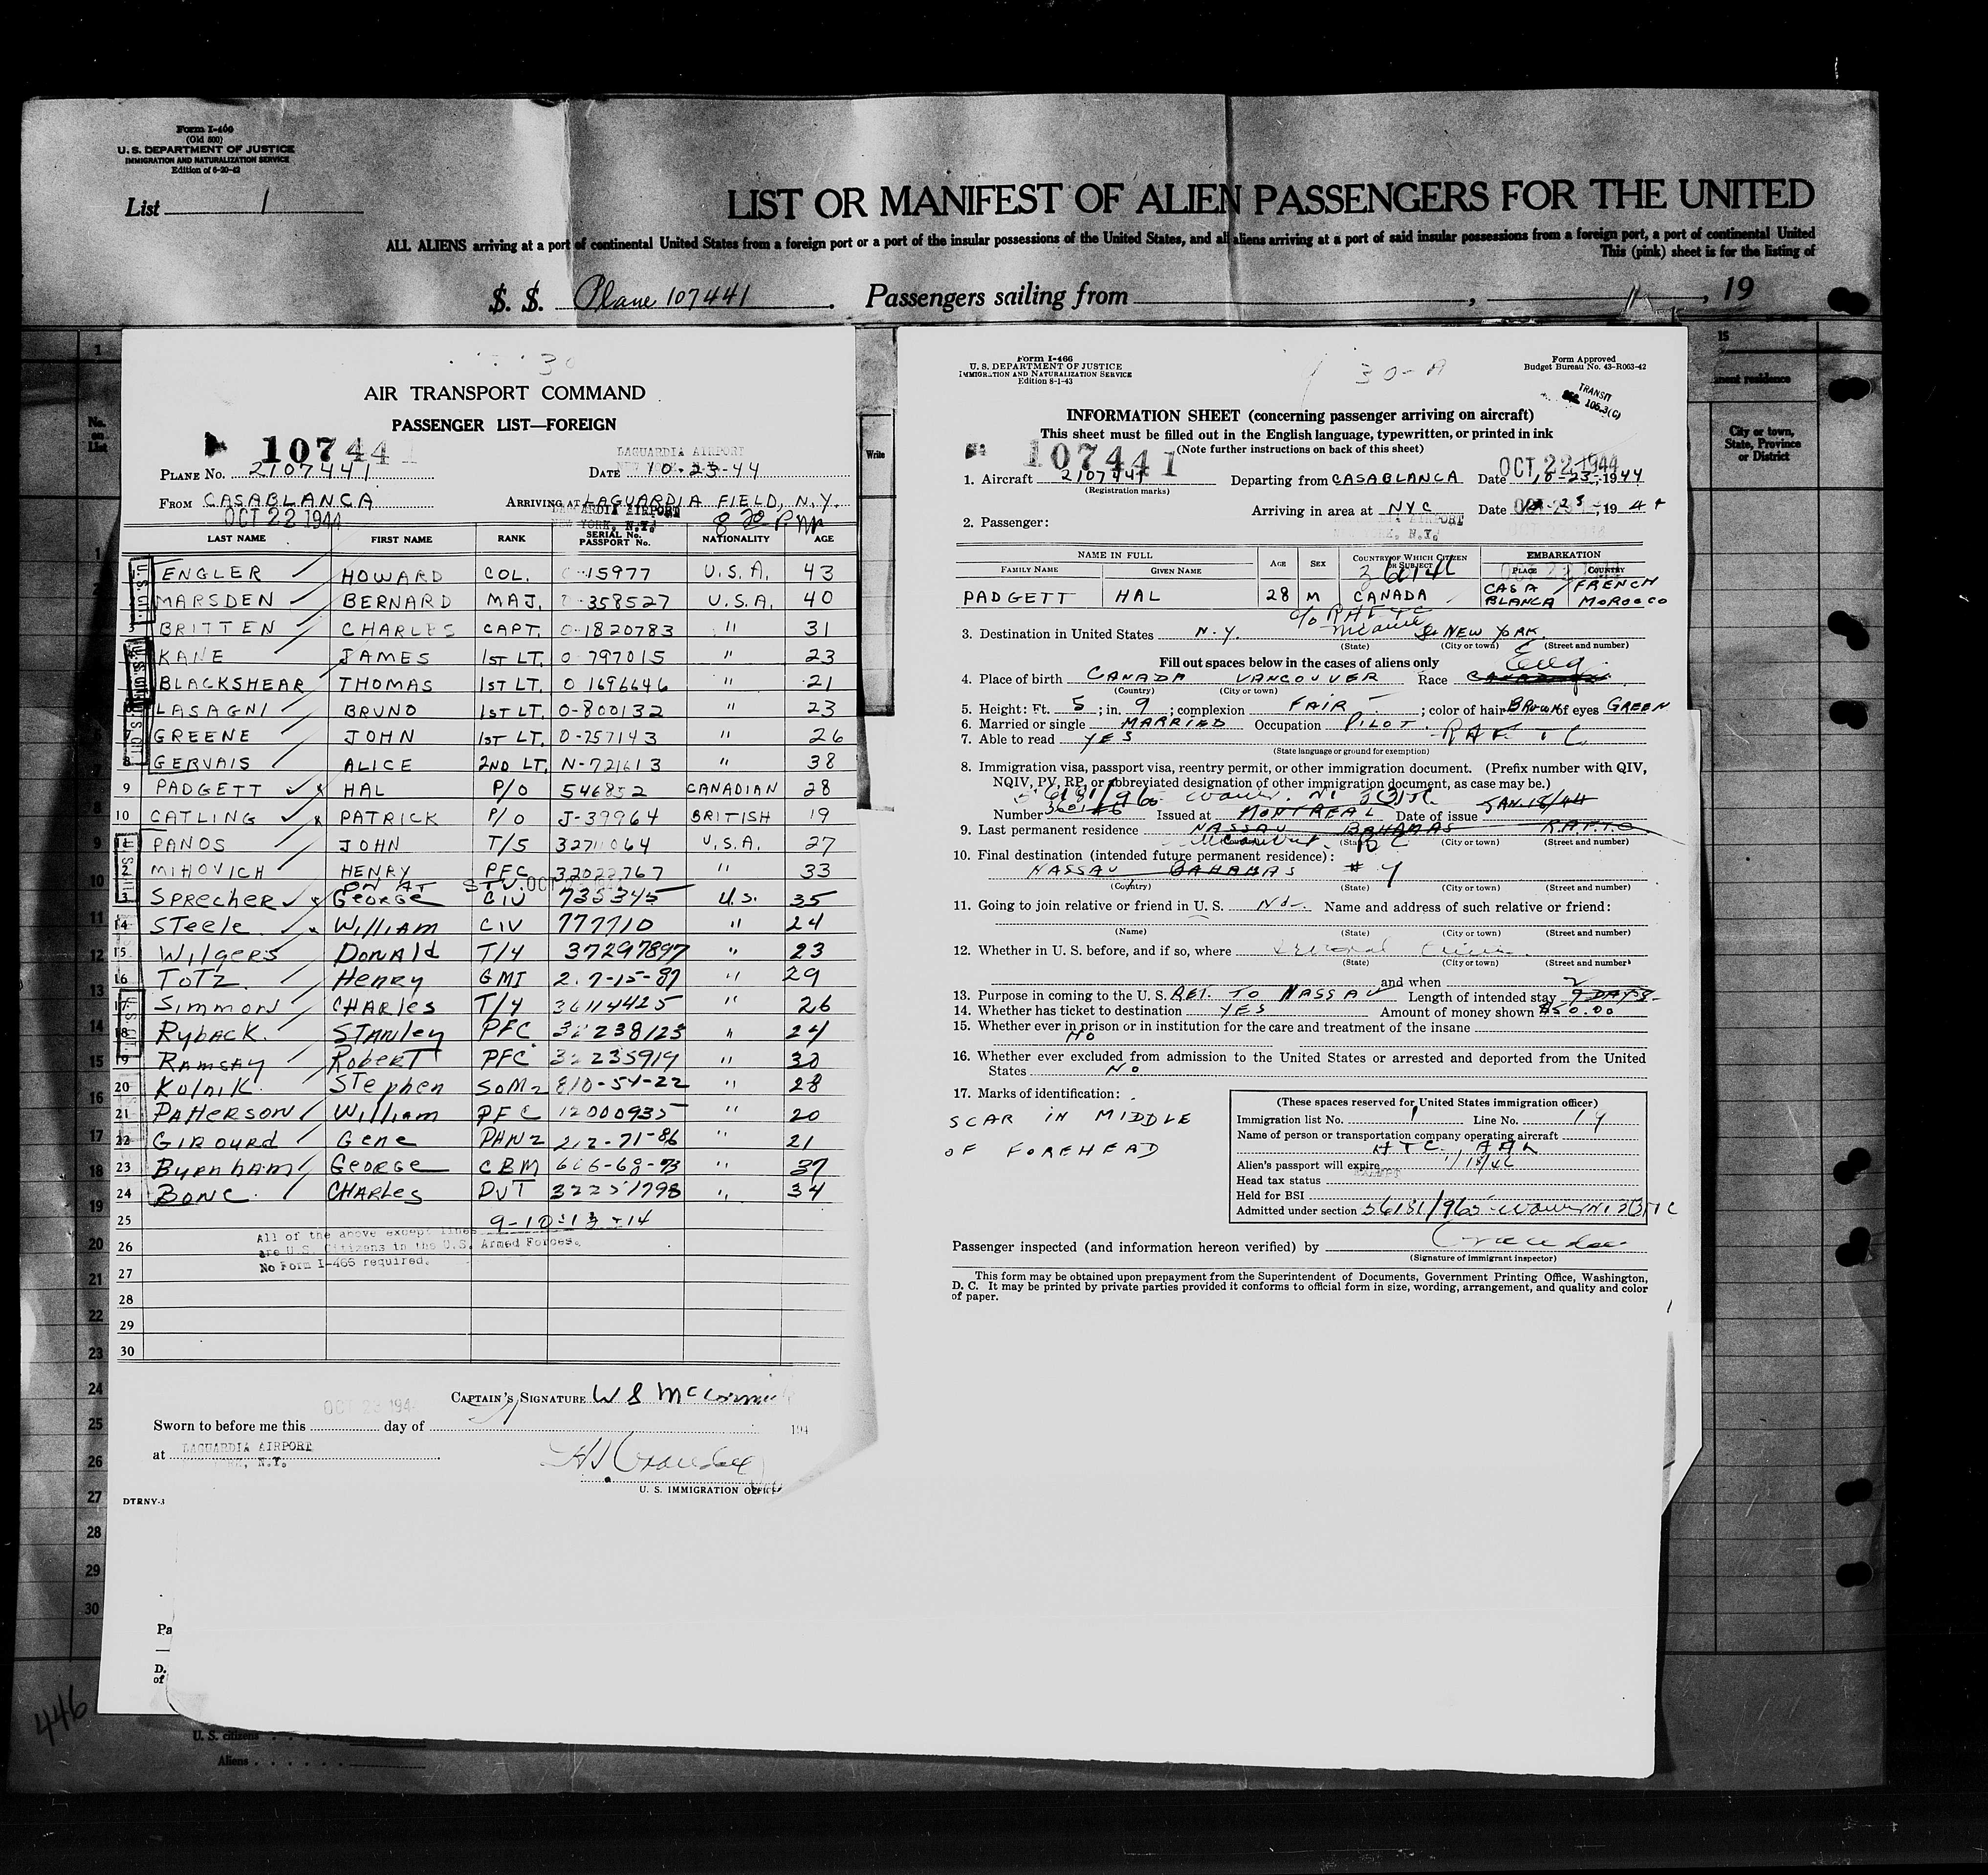 Form I-466
(Old 500)
U. S. DEPARTMENT OF JUSTICE
IMMIGRATION AND NATURALIZATION SERVICE
Edition of 6-20-42
List 1
LIST OR MANIFEST OF ALIEN PASSENGERS FOR THE UNITED
ALL ALIENS arriving at a port of continental United States from a foreign port or a port of the insular possessions of the United States, and all aliens arriving at a port of said insular possessions from a foreign port, a port of continental United
This (pink) sheet is for the listing of
S. S. Plane 107441. Passengers sailing from , , 19
AIR TRANSPORT COMMAND
PASSENGER LIST—FOREIGN
107441
LAGUARDIA AIRPORT
PLANE NO. 2107441 DATE 10-23-44
FROM CASABLANCA ARRIVING AT LAGUARDIA FIELD, N.Y.
OCT 22 1944 LAGUARDIA AIRPORT
NEW YORK, N.Y. 8 20 PM
LAST NAME FIRST NAME RANK SERIAL No. PASSPORT No. NATIONALITY AGE
ENGLER HOWARD COL. 0-15977 U.S.A. 43
MARSDEN BERNARD MAJ. 0-358527 U.S.A. 40
BRITTEN CHARLES CAPT. 0-1820783 " 31
KANE JAMES 1ST LT. 0 797015 " 23
BLACKSHEAR THOMAS 1ST LT. 0 1696646 " 21
LASAGNI BRUNO 1ST LT. 0-800132 " 23
7 GREENE JOHN 1ST LT. 0-757143 " 26
8 GERVAIS ALICE 2ND LT. N-721613 " 38
9 PADGETT HAL P/O 546852 CANADIAN 28
10 CATLING PATRICK P/O J-39964 BRITISH 19
PANOS JOHN T/5 32711064 U.S.A. 27
MIHOVICH HENRY PFC 32022767 " 33
SPrecher George CIV 735345 U.S. 35
14 STeele William CIV 777710 " 24
15 Wilgers Donald T/4 37297897 " 23
16 ToTz Henry GMI 2.7-15-87 " 29
17 Simmon CHARles T/4 36114425 " 26
18 Ryback STANley PFC 32238123 " 24
19 Ramsay Robert PFC 32235919 " 30
20 Kolnik STephen SOM2 810-54-22 " 28
21 PAtterson William PFC 12000935 " 20
22 Girourd Gene PHN2 212-71-86 " 21
23 Burnham George CBM 606-68-73 " 37
24 BONC CHARles DVT 32251798 " 34
25 9-10-13-14
All of the above except lines
26 are U.S. Citizens in the U.S. Armed Forces.
27 No Form I-466 required.
28
29
30
CAPTAIN'S SIGNATURE
OCT 23 194
Sworn to before me this day of 194
at LAGUARDIA AIRPORT
N.Y.
U. S. IMMIGRATION OFFICER
DTRNY-3
Form I-466
U. S. DEPARTMENT OF JUSTICE
IMMIGRATION AND NATURALIZATION SERVICE
Edition 8-1-43
30-A
Form Approved
Budget Bureau No. 43-R063-42
TRANSIT
105.3(C)
INFORMATION SHEET (concerning passenger arriving on aircraft)
This sheet must be filled out in the English language, typewritten, or printed in ink
(Note further instructions on back of this sheet)
107441 OCT 22 1944
1. Aircraft 2107441 Departing from CASABLANCA Date 10-23-, 1944
(Registration marks)
Arriving in area at NYC Date 10-23-, 1944
2. Passenger:
NAME IN FULL AGE SEX COUNTRY OF WHICH CITIZEN OR SUBJECT EMBARKATION
FAMILY NAME GIVEN NAME PLACE COUNTRY
PADGETT HAL 28 M CANADA CASA BLANCA FRENCH MOROCCO
3. Destination in United States N.Y. NEW YORK
(State) (City or town) (Street and number)
Fill out spaces below in the cases of aliens only
4. Place of birth CANADA VANCOUVER Race Eng.
(Country) (City or town)
5. Height: Ft. 5; in. 9; complexion FAIR; color of hair BROWN of eyes GREEN
6. Married or single MARRIED Occupation PILOT
7. Able to read YES
(State language or ground for exemption)
8. Immigration visa, passport visa, reentry permit, or other immigration document. (Prefix number with QIV,
NQIV, PV, RP, or abbreviated designation of other immigration document, as case may be.)
Number Issued at MONTREAL Date of issue JAN 18/44
9. Last permanent residence NASSAU BAHAMAS R.A.F.T.C.
(State) (City or town) (Street and number)
10. Final destination (intended future permanent residence):
NASSAU BAHAMAS # 4
(Country) (State) (City or town) (Street and number)
11. Going to join relative or friend in U. S. No. Name and address of such relative or friend:
(Name) (State) (City or town) (Street and number)
12. Whether in U. S. before, and if so, where several times
(State) (City or town) (Street and number)
and when
13. Purpose in coming to the U. S. RET. TO NASSAU Length of intended stay 9 DAYS
14. Whether has ticket to destination YES Amount of money shown $50.00
15. Whether ever in prison or in institution for the care and treatment of the insane
NO
16. Whether ever excluded from admission to the United States or arrested and deported from the United
States No
17. Marks of identification:
SCAR IN MIDDLE
OF FOREHEAD
(These spaces reserved for United States immigration officer)
Immigration list No. 1 Line No. 14
Name of person or transportation company operating aircraft
ATC. AAL
Alien's passport will expire 1/18/46
Head tax status EXEMPT
Held for BSI
Admitted under section 56181/965
Passenger inspected (and information hereon verified) by
(Signature of immigrant inspector)
This form may be obtained upon prepayment from the Superintendent of Documents, Government Printing Office, Washington,
D. C. It may be printed by private parties provided it conforms to official form in size, wording, arrangement, and quality and color
of paper.
No. on List
Write
15
City or town, State, Province or District
446
U. S. citizens
Aliens